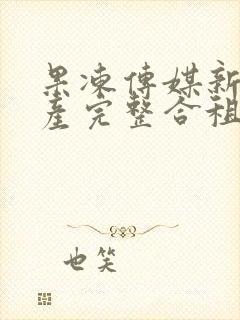 果凍傳媒新
產完整合租
也笑